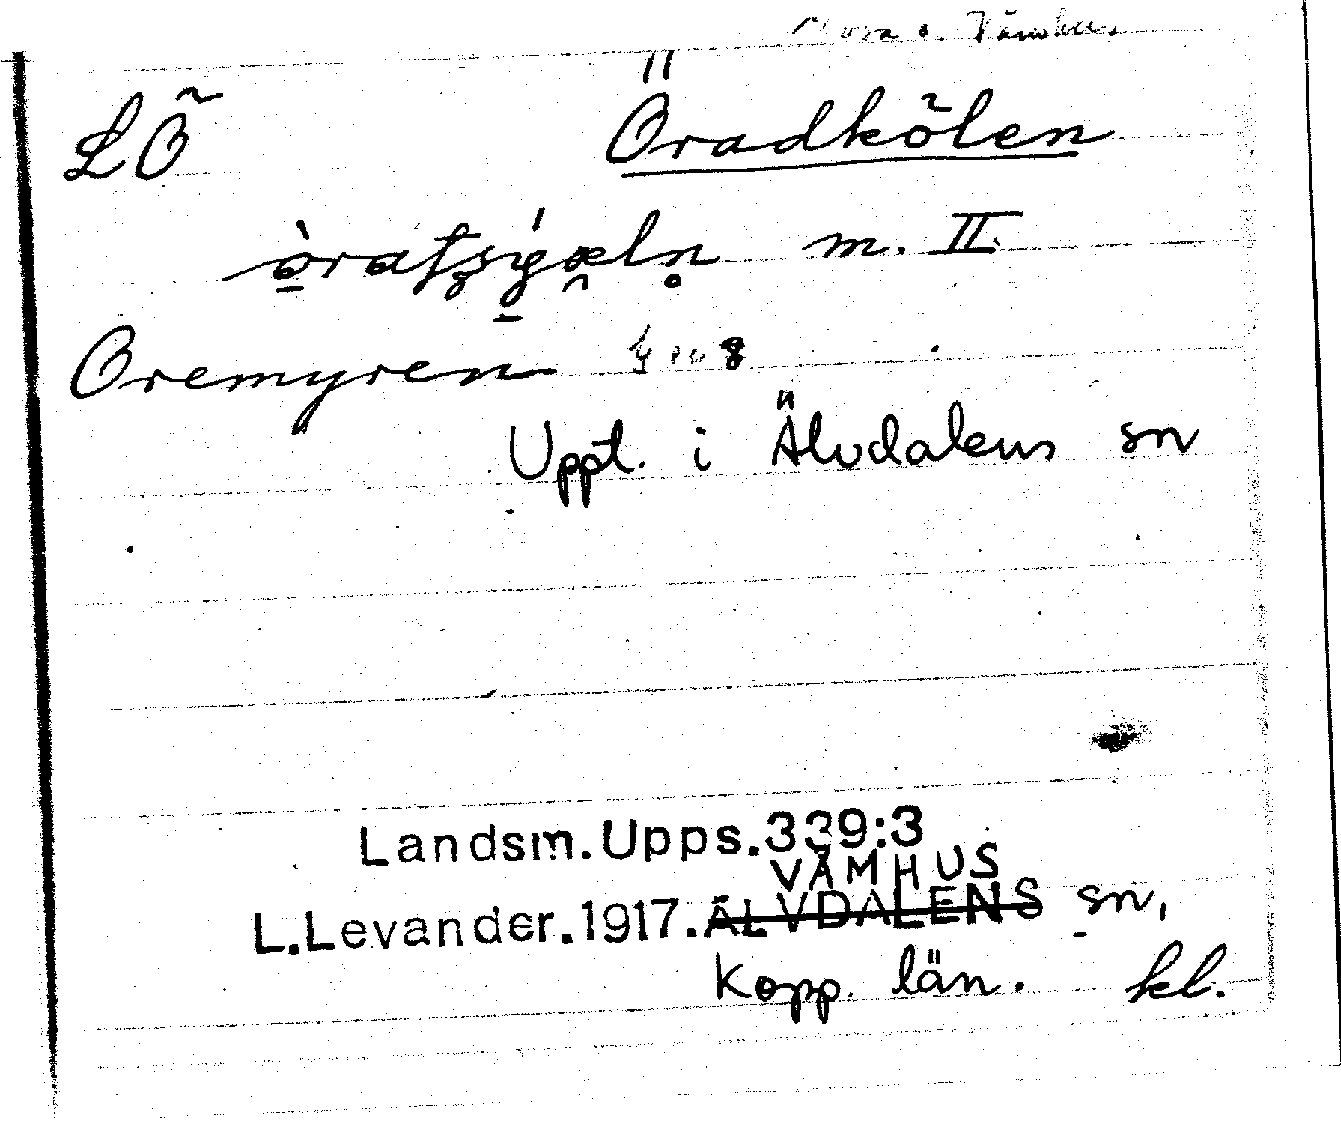 Mora o. Våmhus
LÖ Öradkölen
m. II.
Oremyren
Uppt. i Älvdalens sn
Landsm.Upps.339:3
VÅMHUS
L.Levander.1917.ÄLVDALENS sn,
Kopp. län. kl.